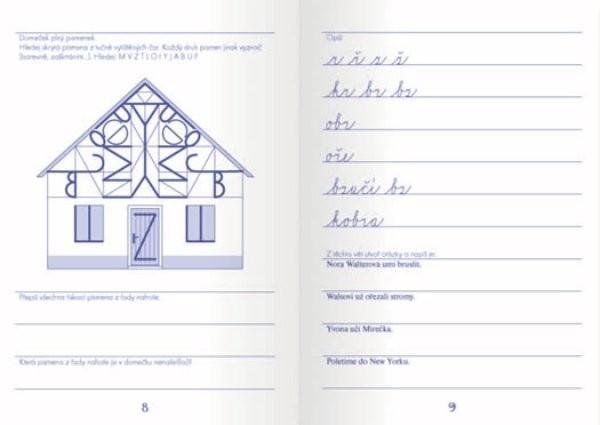 Domeček plný písmenek.
Hledej skrytá písmena z tučně vytištěných čar. Každý druh písmen jinak vyznač
(barevně, zašktnutím...). Hledej: M V Z T L O I Y J A B U F
Přepiš všechna tiskací písmena z řady nahoře.
Která písmena z řady nahoře je v domečku nenašel(la)?
8
Opiš:
r ř s š
hr br bz
obr
oře
bzučí bz
kobra
Z těchto vět utvoř otázky a napiš je:
Nora Walterová umí bruslit.
Walsovi už ořezali stromy.
Yvona učí Mirečka.
Poletíme do New Yorku.
9